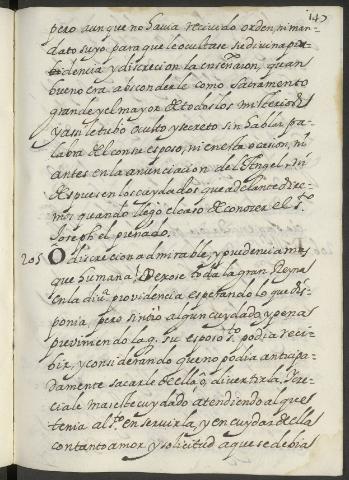 147
pero aunque no havia recivido orden, ni man-
dato suyo para que le ocultase su divina pru-
dencia y discrecion la enseñaron, quan
bueno era absconderle como Sacramento
grande y el mayor de todos los misterios
y assi le tubo oculto y secreto sin hablar pa-
labra del con su esposo, ni en esta ocasion, ni
antes en la anunciacion del Angel, ni
despues en los cuydados que adelante dire-
mos quando llegó el caso de conocer el S.to
Joseph el preñado.
205 O discrecion admirable, y prudencia mas
que humana! Dexose toda la gran Reyna
en la div.a providencia esperando lo que dis-
ponia, pero sintió algun cuydado, y pena
previniendo la q. su esposo S.to podia reci-
bir, y considerando que no podia anticipa-
damente sacarle de ella, ó divertirla. Cre-
ciale mas este cuydado atendiendo al que
tenia al S.to en servirla, y en cuydar de ella
con tanto amor y solicitud a que se debia